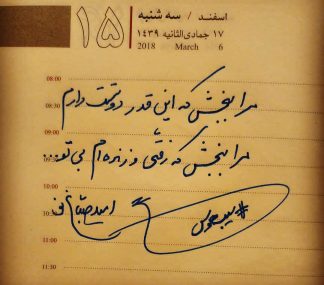 اسفند / سه شنبه
۱۵
۱۷ جمادی‌الثانیه ۱۴۳۹
2018 March 6
08:00
مرا ببخش که این قدر دوستت دارم
08:30
09:00
مرا ببخش که رفتی و زنده ام بی تو...
09:30
10:00
امید صباغ نو
10:30
#سیب_هوس
11:00
11:30